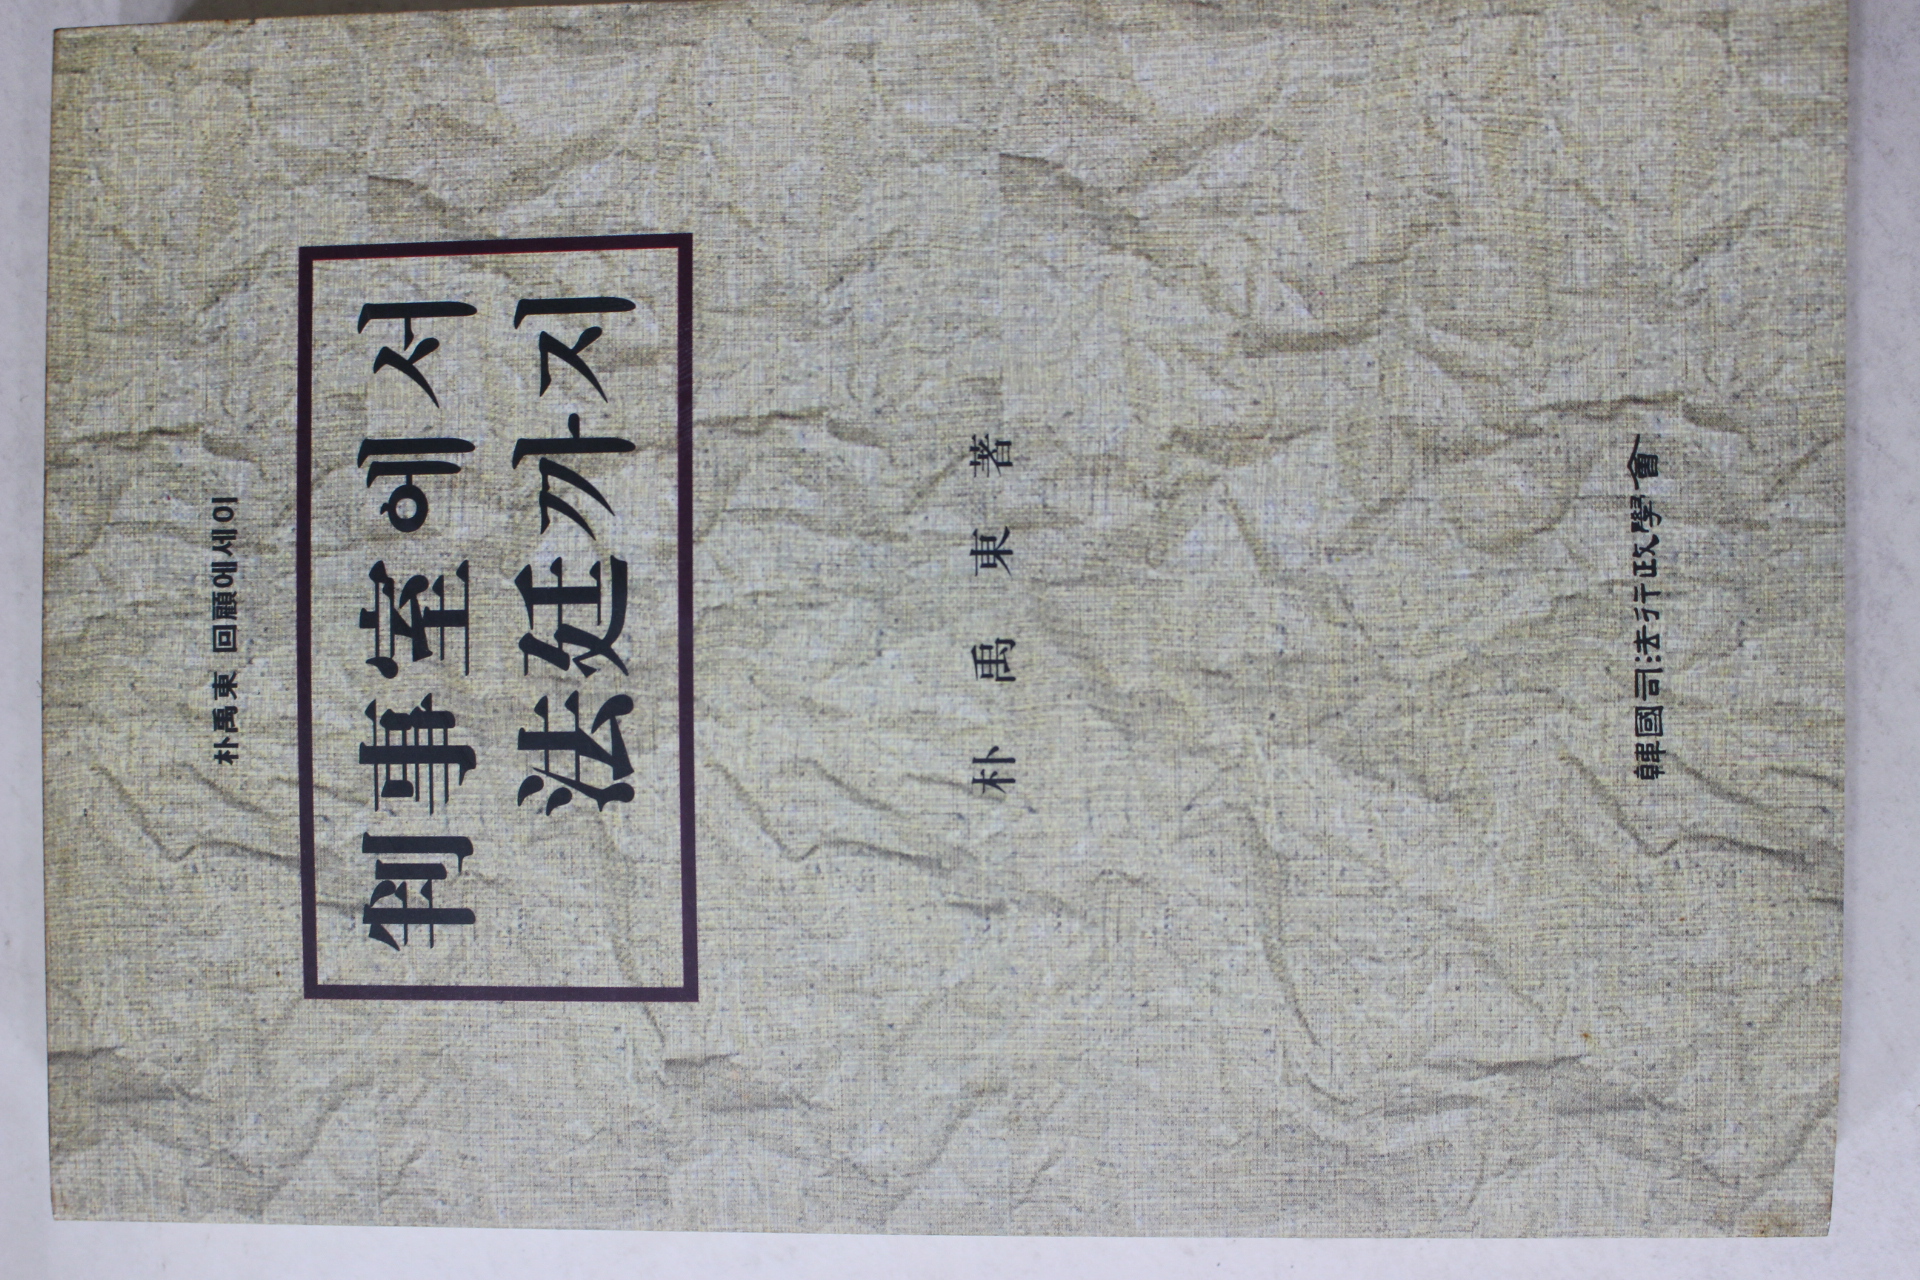 朴禹東 回顧에세이
判事室에서
法廷까지
朴 禹 東 著
韓國司法行政學會